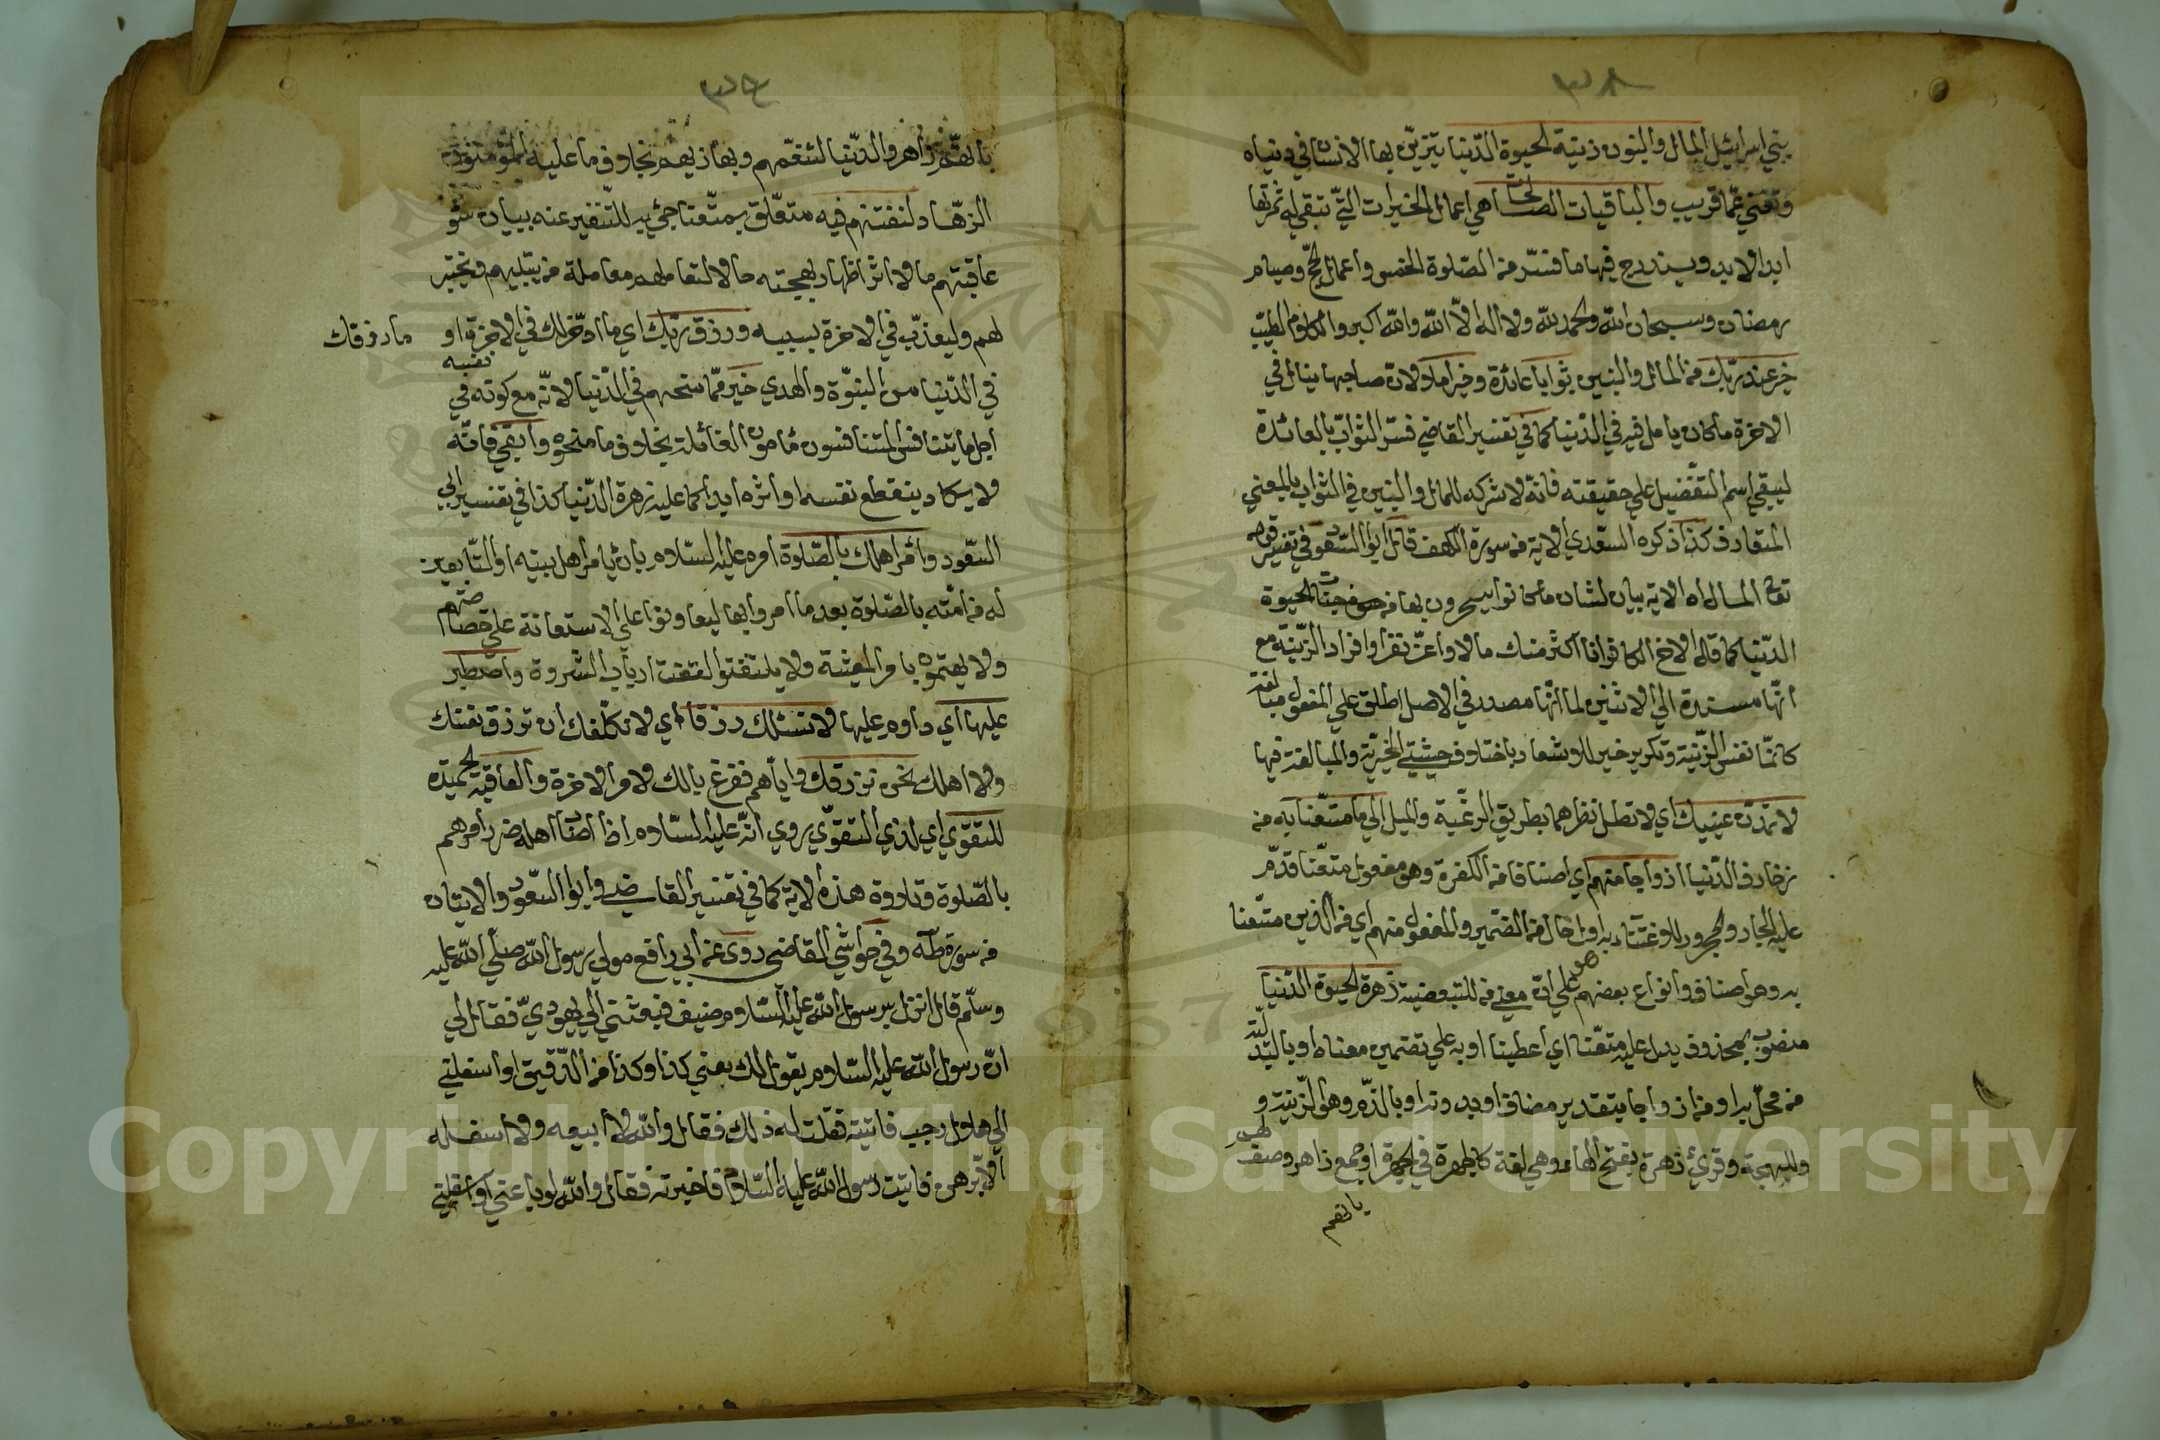 ٣٨
بني اسرائيل المال والبنون زينة الحيوة الدنيا يتزين بها الانسان في دنياه
وتفني عما قريب والباقيات الصالحات هي اعمال الخيرات التي تبقي له ثمرتها
ابد الاباد ويندرج فيها ما فسر من الصلوة الخمس واعمال الحج وصيام
رمضان وسبحان الله والحمد لله ولا اله الا الله والله اكبر والكلام الطيب
خير عند ربك من المال والبنين ثوابا عائدة وخير املا لان صاحبها ينال في
الاخرة ما كان يامل فيه في الدنيا كما في تفسير القاضي فسر الثواب بالعائدة
ليبقي اسم التفضيل علي حقيقته فانه لا شركه للمال والبنين في الثواب بالمعني
المتعارف كذا ذكره السعدي الاية من سورة الكهف قال ابو السعود في تفسير قوله
تعالى المال اه الاية بيان لشان ما كانوا يفتخرون بها من الحيوة
الدنيا كما قال الاخ الكافر انا اكثر منك مالا واعز نفرا وافراد الزينة مع
انها مسندة الي الاثنين لما انها مصدر في الاصل اطلق علي المفعول مبالغة
كانما نفس الزينة وتكرير خير للاشعار باختلاف حيثيتي الخيرية والمبالغة فيها
لا تمدن عينيك اي لا تطل نظرهما بطريق الرغبة والميل الي ما متعنا به من
زخارف الدنيا ازواجا منهم اي اصنافا من الكفرة وهو مفعول متعنا قدم
عليه الجار والمجرور للاعتناء به او حال من الضمير والمفعول منهم اي من الذين متعنا
به وهو اصناف وانواع بعضهم علي ان معني من للتبعيض زهرة الحيوة الدنيا
منصوب بمحذوف يدل عليه متعنا اي اعطينا او به علي تضمين معناه او بالبدلية
من محل به او من ازواجا بتقدير مضاف او بدونه او بالذم وهو الزينة و
والبهجة وقرئ زهرة بفتح الهاء وهي لغة كالجهرة في الجهرة او جمع زاهر وصف لهم
بانهم
بانهم زاهروا الدنيا لتنعمهم وبهاء زيهم بخلاف ما عليه المؤمنون
الزهاد لنفتنهم فيه متعلق بمتعنا جئ به للتنفير عنه ببيان سوء
عاقبتهم مالا اثر اظهار بهجته حالا لنعاملهم معاملة من يبتليهم ويختبر
لهم وليعذب في الاخرة بسببه ورزق ربك اي ما ادخر لك في الاخرة او ما رزقك
في الدنيا من النبوة والهدي خير مما منحهم في الدنيا لانه مع كونه في نفسه
اجل ما يتنافس المتنافسون مامون الغائلة بخلاف ما منحوه وابقي فانه
لا يكاد ينقطع نفسه او اثره ابدا كما عليه زهرة الدنيا كذا في تفسير ابي
السعود وأمر اهلك بالصلوة امره عليه السلام بان يامر اهل بيته او التابعين
له من امته بالصلوة بعد ما امر وا بها ليعاونوا علي الاستعانة علي خصاصتهم
ولا يهتموا بامر المعيشة ولا يلتفتوا لفت ارباب الثروة واصطبر
عليها اي داوم عليها لا نسئلك رزقا اي لا نكلفك ان ترزق نفسك
ولا اهلك نحن نرزقك واياهم ففرغ بالك لامر الاخرة والعاقبة الحميدة
للتقوي اي لذي التقوي روي انه عليه السلام اذا اصاب اهله ضر امرهم
بالصلوة وتلاوة هذه الاية كما في تفسير القاضي وابو السعود والايتان
من سورة طه وفي حواشي القاضي روي عن ابي رافع مولي رسول الله صلي الله عليه
وسلم قال نزل برسول الله عليه السلام ضيف فبعثني الي يهودي فقال لي
ان رسول الله عليه السلام يقول لك بعني كذا وكذا من الدقيق او اسلفني
الي هلال رجب فاتيته فقلت له ذلك فقال والله لا ابيعه ولا اسفله
الا برهن فاتيت رسول الله عليه السلام فاخبرته فقال والله لو باعني او اسلفني
Copyright © King Saud University
1957